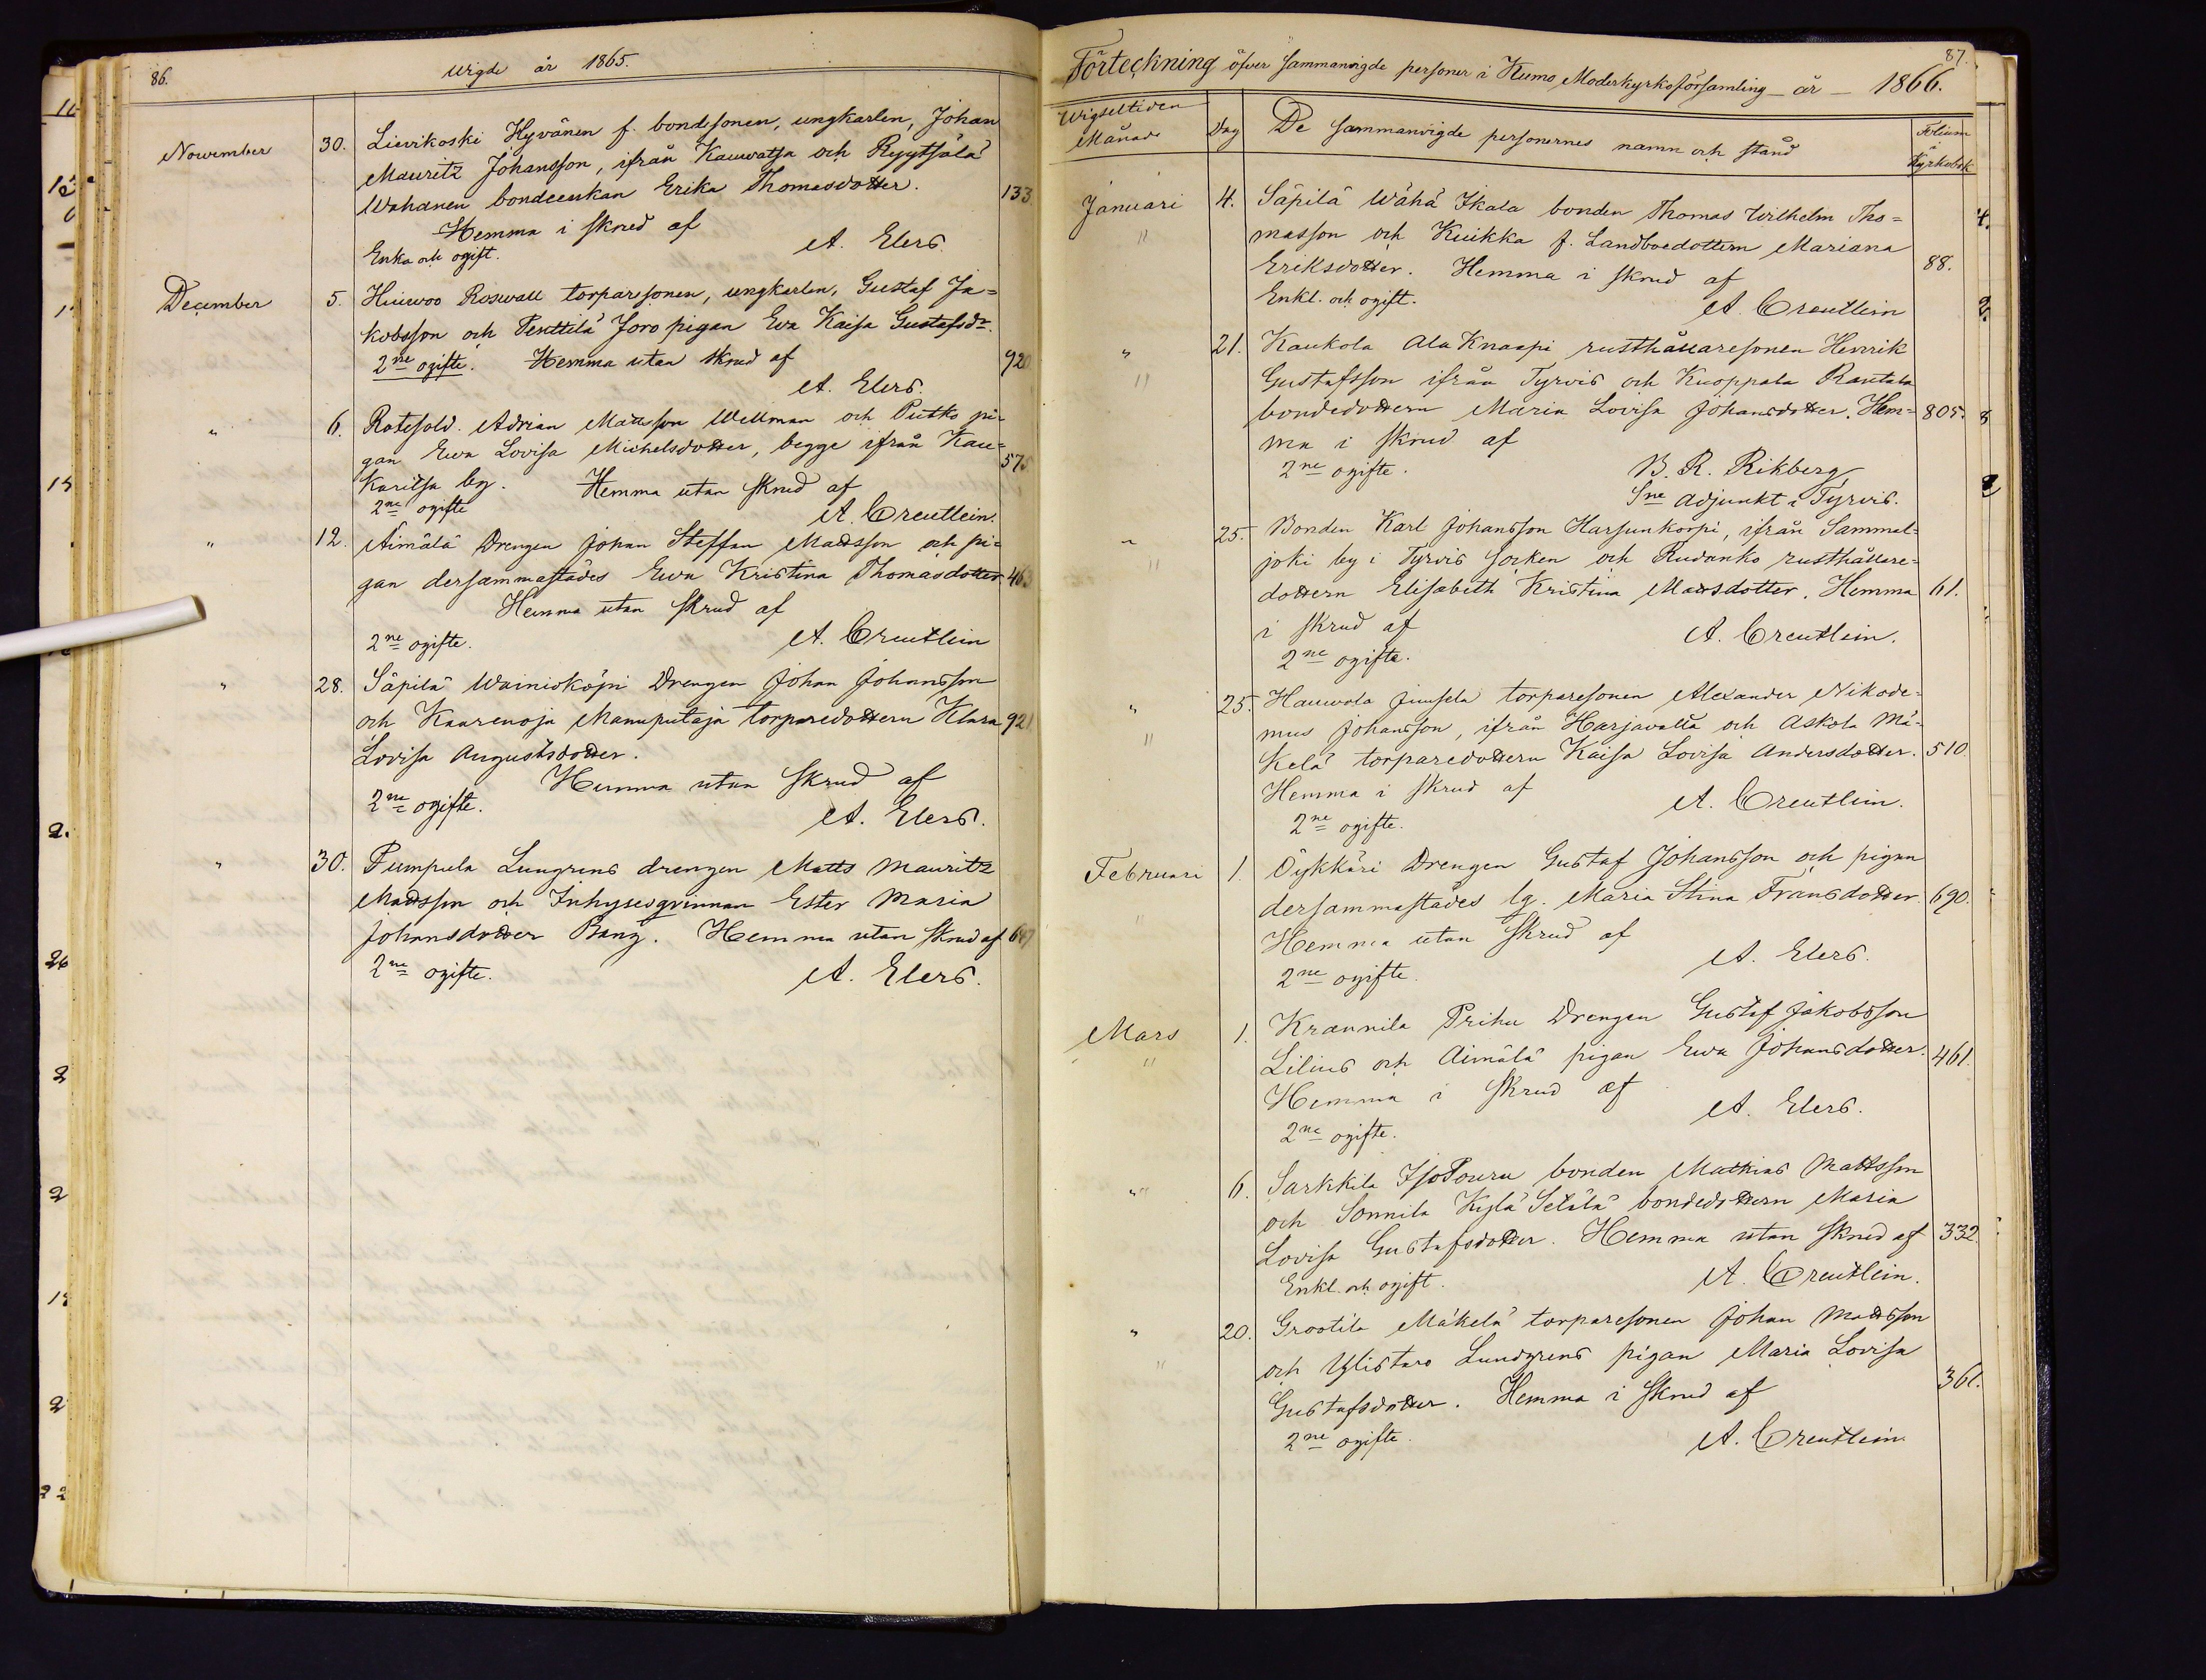 86.
Wigde år 1865.
November 30. Lievikoski Hyvänen f. bondesonen, ungkarlen, Johan
Mauritz Johansson, ifrån Kauvatsa och Ryytsälä
Wahanen bondeenkan Erika Thomasdotter. 133
Hemma i skrud af
Enka och ogift. A. Elers
December 5. Hiuwoo Roswall torparsonen, ungkarlen, Gustaf Ja=
kobsson och Penttilä Joro pigan Eva Kaisa Gustafsdr.
2ne ogifte. Hemma utan skrud af 920
A. Elers
" 6. Rotesold. Adrian Mattsson Wellman och Putko pi-
gan Ewa Lovisa Michelsdotter, begge ifrån Kau= 575
karitsa by. Hemma utan skrud af
2ne ogifte A. Creutlein.
" 12. Aimälä Drengen Johan Steffan Mattsson och pi=
gan dersammastädes Ewa Kristina Thomasdotter. 463
Hemma utan skrud af
2ne ogifte. A. Creutlein
" 28. Säpilä Wainioköpi Drengen Johan Johansson
och Kaarenoja Mamuputaja torparedottern Klara 921
Lovisa Augustsdotter.
Hemma utan Skrud af
2ne ogifte. A. Elers.
" 30. Pumpula Lungrens drengen Matts Mauritz
Mattsson och Inhysesqvinnan Ester Maria
Johansdotter Rang. Hemma utan skrud af 647
2ne ogifte. A. Elers.
87.
Förteckning öfver Sammanvigde personer i Kumo Moderkyrkoförsamling - år - 1866.
Wigseltiden
Månad Dag De Sammanvigde personernes namn och stånd Folium i Kyrkobok
Januari 4. Säpilä Wähä Ikala bonden Thomas Wilhelm Tho=
" masson och Kuikka f. Landboedottern Mariana
Eriksdotter. Hemma i skrud af 88.
Enkl. och ogift. A. Creutlein
" 21. Kaukola Ala Knaapi rusthållaresonen Henrik
" Gustafsson ifrån Tyrvis och Kuoppala Rantala
bondedottern Maria Lovisa Johansdotter. Hem= 805.
ma i skrud af
2ne ogifte. B. R. Rikberg
Sne Adjunkt i Tyrvis.
" 25. Bonden Karl Johansson Harsunkorpi, ifrån Sammal=
" joki by i Tyrvis socken och Rudanko rusthållare=
dottern Elisabeth Kristina Mattsdotter. Hemma 61.
i skrud af A. Creutlein.
2ne ogifte.
" 25. Hauvola Juusela torparesonen Alexander Nikode-
" mus Johansson, ifrån Harjavalta och Askola Mä-
kelä torparedottern Kaisa Lovisa Andersdotter. 510
Hemma i skrud af A. Creutlein.
2ne ogifte.
Februari 1. Öykkäri Drengen Gustaf Johansson och pigan
" dersammastädes lg. Maria Stina Fransdotter. 690.
Hemma utan skrud af
2ne ogifte. A. Elers.
Mars 1. Krannila Prihu Drengen Gustaf Jakobsson
" Lilius och Aimälä pigan Ewa Johansdotter. 461.
Hemma i skrud af A. Elers.
2ne ogifte.
" 6. Sarkkila IsoPouru bonden Mathias Mattsson
och Sonnila Kylä Setälä bondedottern Maria
Lovisa Gustafsdotter. Hemma utan skrud af 332.
Enkl. och ogift. A. Creutlein.
" 20. Grootila Mäkelä torparesonen Johan Mattsson
" och Ylistaro Lundgrens pigan Maria Lovisa
Gustafsdotter. Hemma i skrud af 361.
2ne ogifte. A. Creutlein